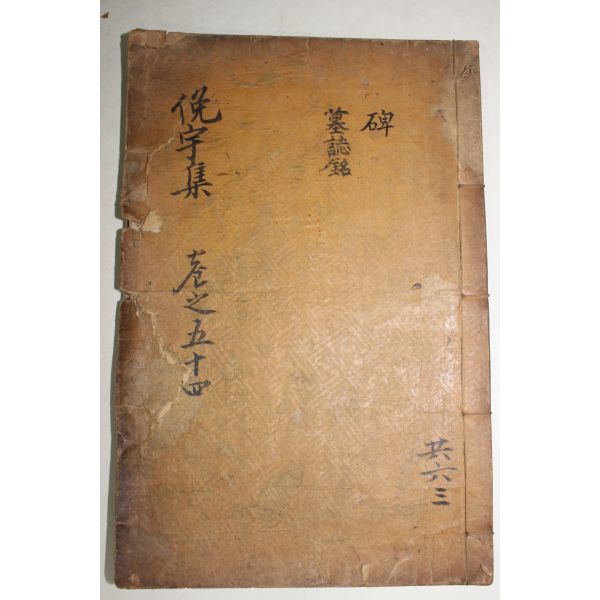 碑
墓誌銘
俛宇集 卷之五十四
共六三